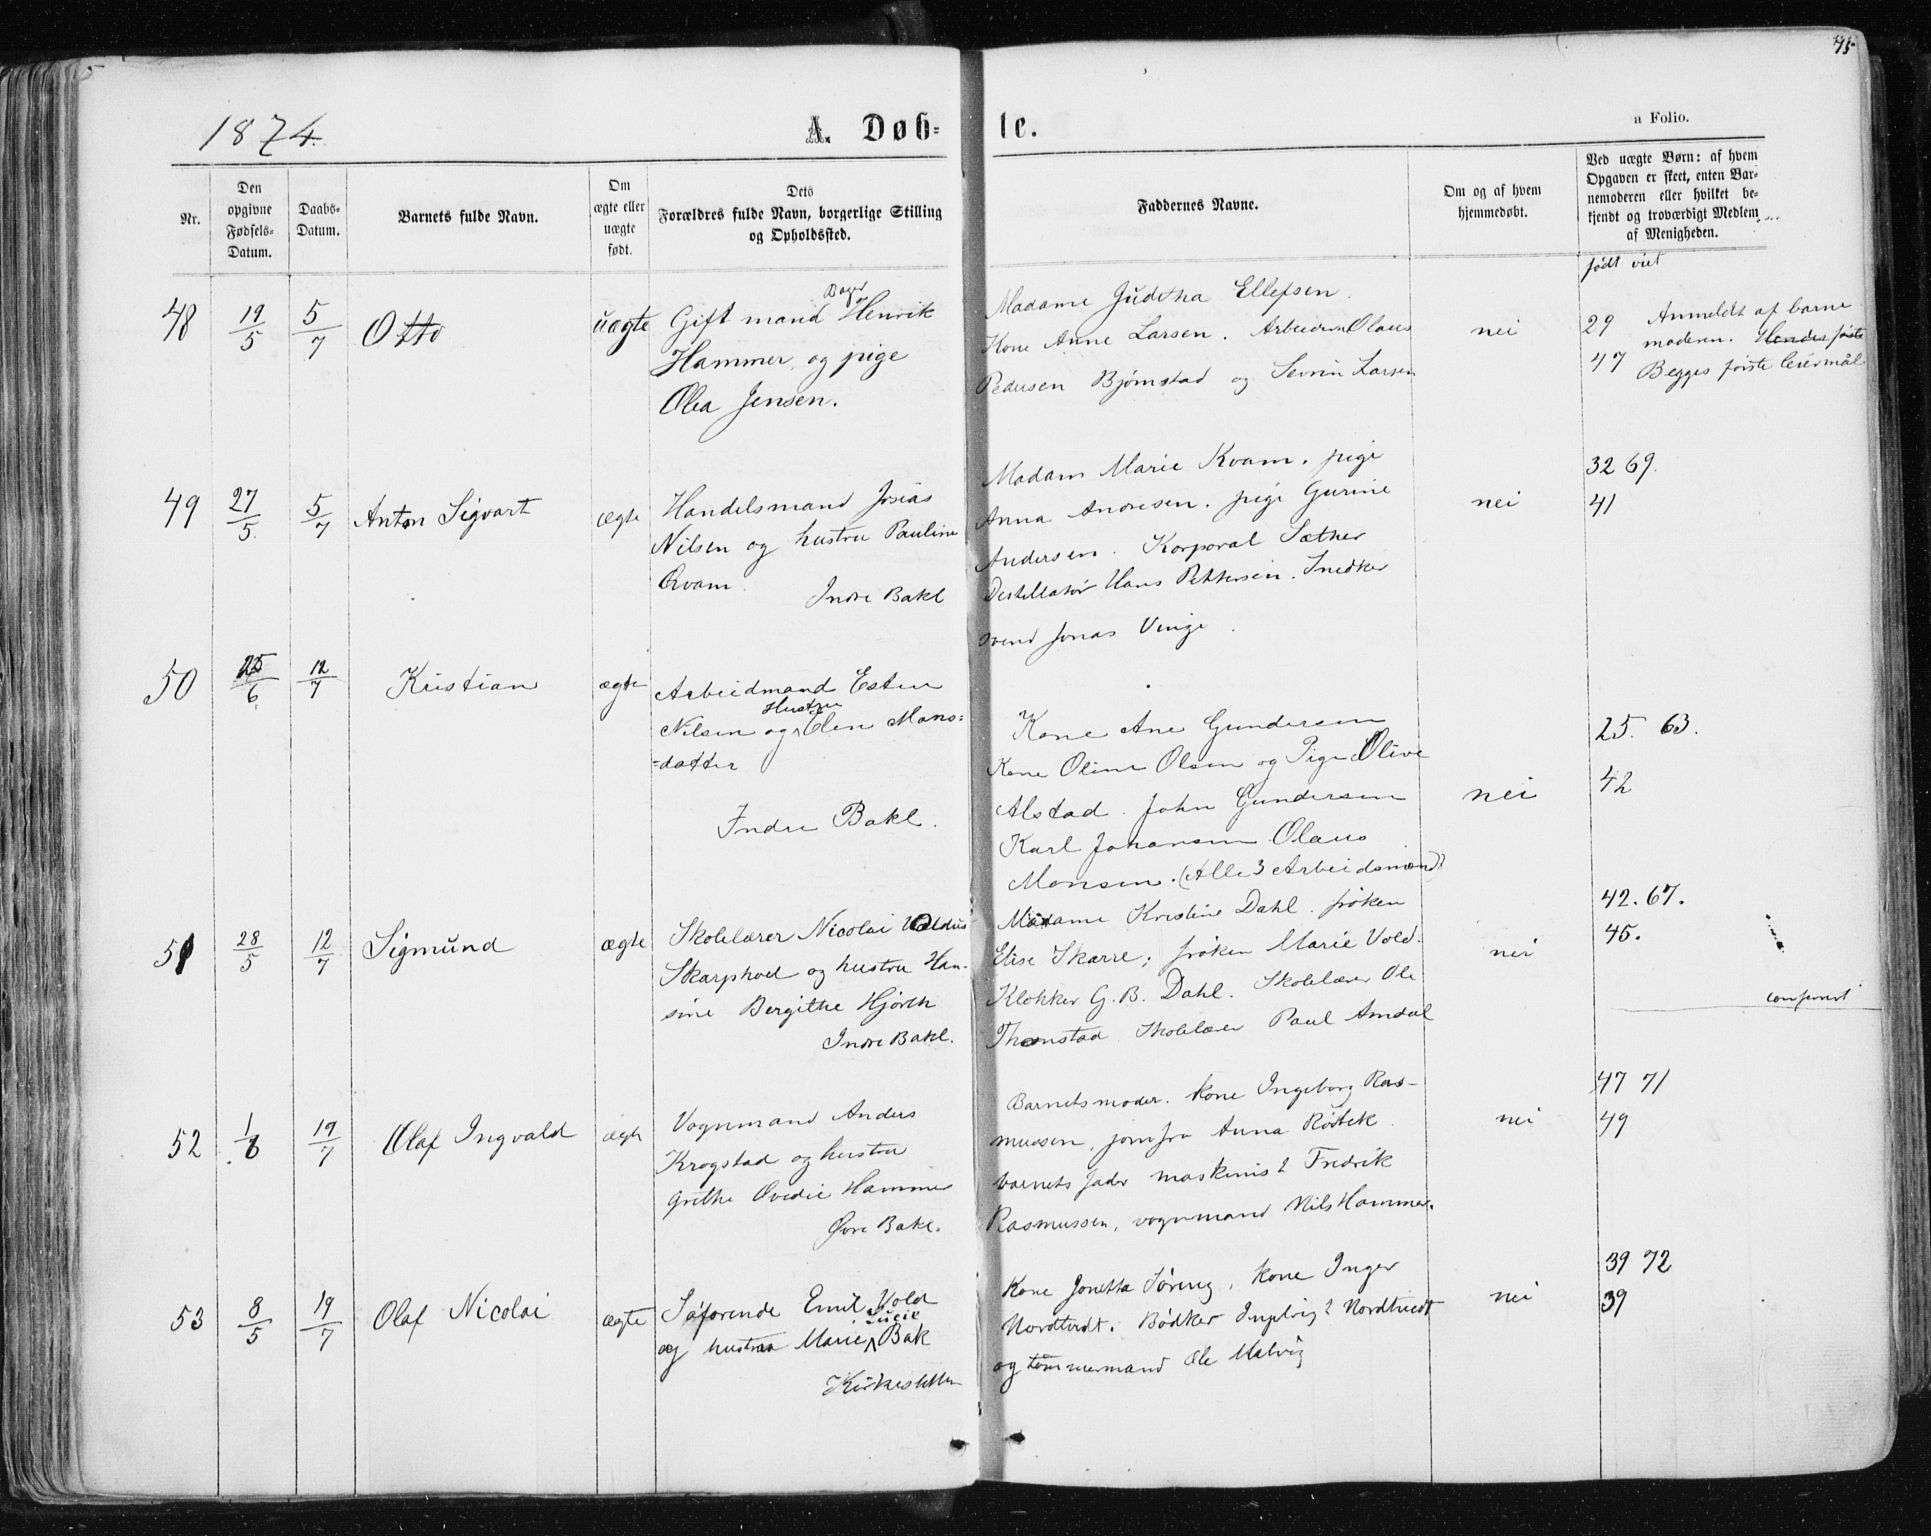 75
1874.
A. Døb-
te.
a Folio.
Nr.
Den opgivne Fødsels-Datum.
Daabs-Datum.
Barnets fulde Navn.
Om ægte eller uægte født.
Dets Forældres fulde Navn, borgerlige Stilling og Opholdssted.
Faddernes Navne.
Om og af hvem hjemmedøbt.
Ved uægte Børn: af hvem
Opgaven er skeet, enten Bar-
nemoderen eller hvilket be-
kjendt og troværdigt Medlem
af Menigheden.
født viet
48 19/5 5/7 Otto uægte
Gift mand Bager Henrik
Hammer og pige
Olea Jensen.
Madame Juditha Ellefsen.
Kone Anne Larsen. Arbeidsm Olaus
Pedersen Bjørnstad og Sevrin Larsen
nei
29
47
Anmeldt af barne
moderen. Hendes første
Begges første leiermål
49 27/5 5/7 Anton Sigvart ægte
Handelsmand Josias
Nilsen og hustru Pauline
Qvam.
Indre Bakl
Madam Marie Kvam. pige
Anna Andresen. pige Gurine
Andersen. Korporal Sæther
Destillatør Hans Pettersen. Snedker
svend Jonas Vinge.
nei
32 69.
41
50 25/6 12/7 Kristian ægte
Arbeidmand Esten
Nilsen og Hustru Elen Mons=
=datter
Indre Bakl.
Kone Ane Gundersen
Kone Oline Olsen og Pige Olive
Alstad. John Gundersen
Karl Johansen Olaus
Monsen. (Alle 3 Arbeidsmænd)
nei
25. 63.
42
51 28/5 12/7 Sigmund ægte
Skolelærer Nicolai
Skarphoel og hustru Han-
sine Bergithe Hjorth
Indre Bakl.
Madame Kristine Dahl. frøken
Elise Skarre; frøken Marie Vold.
Klokker G. B. Dahl. Skolelærer Ole
Thonstad. Skolelærer Paul Amdal
nei
42. 67.
45.
52 1/6 19/7 Olaf Ingvald ægte
Vognmand Anders
Krogstad og hustru
Grethe Ovedie Hammer
Øvre Bakl.
Barnets moder. kone Ingeborg Ras-
mussen, jomfru Anna
barnets fader maskinist Fredrik
Rasmussen, vognmand Nils Hammer.
nei
47 71
49
53 8/5 19/7 Olaf Nicolai ægte
Søfarende Emil Vold
og hustru Marie Lucie Bak
Kirkesletten
Kone Jonetta Søreng, kone Inger
Nordtvedt. Bødker Nordtvedt
og tømmermand Ole Malvig
nei
39 72
39